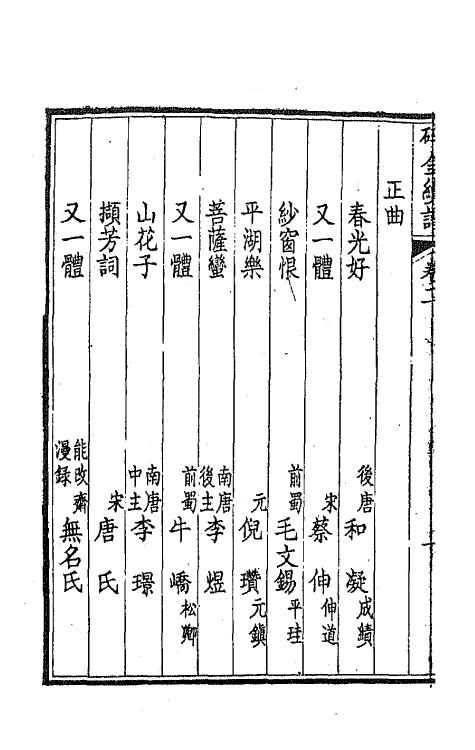 碎金續譜 卷二
正曲
春光好 後唐 和凝 成績
又一體 宋 蔡伸 伸道
紗窗恨 前蜀 毛文錫 平珪
平湖樂 元 倪瓚 元鎮
菩薩蠻 南唐後主 李煜
又一體 前蜀 牛嶠 松卿
山花子 南唐中主 李璟
擷芳詞 宋 唐氏
又一體 能改齋漫録 無名氏